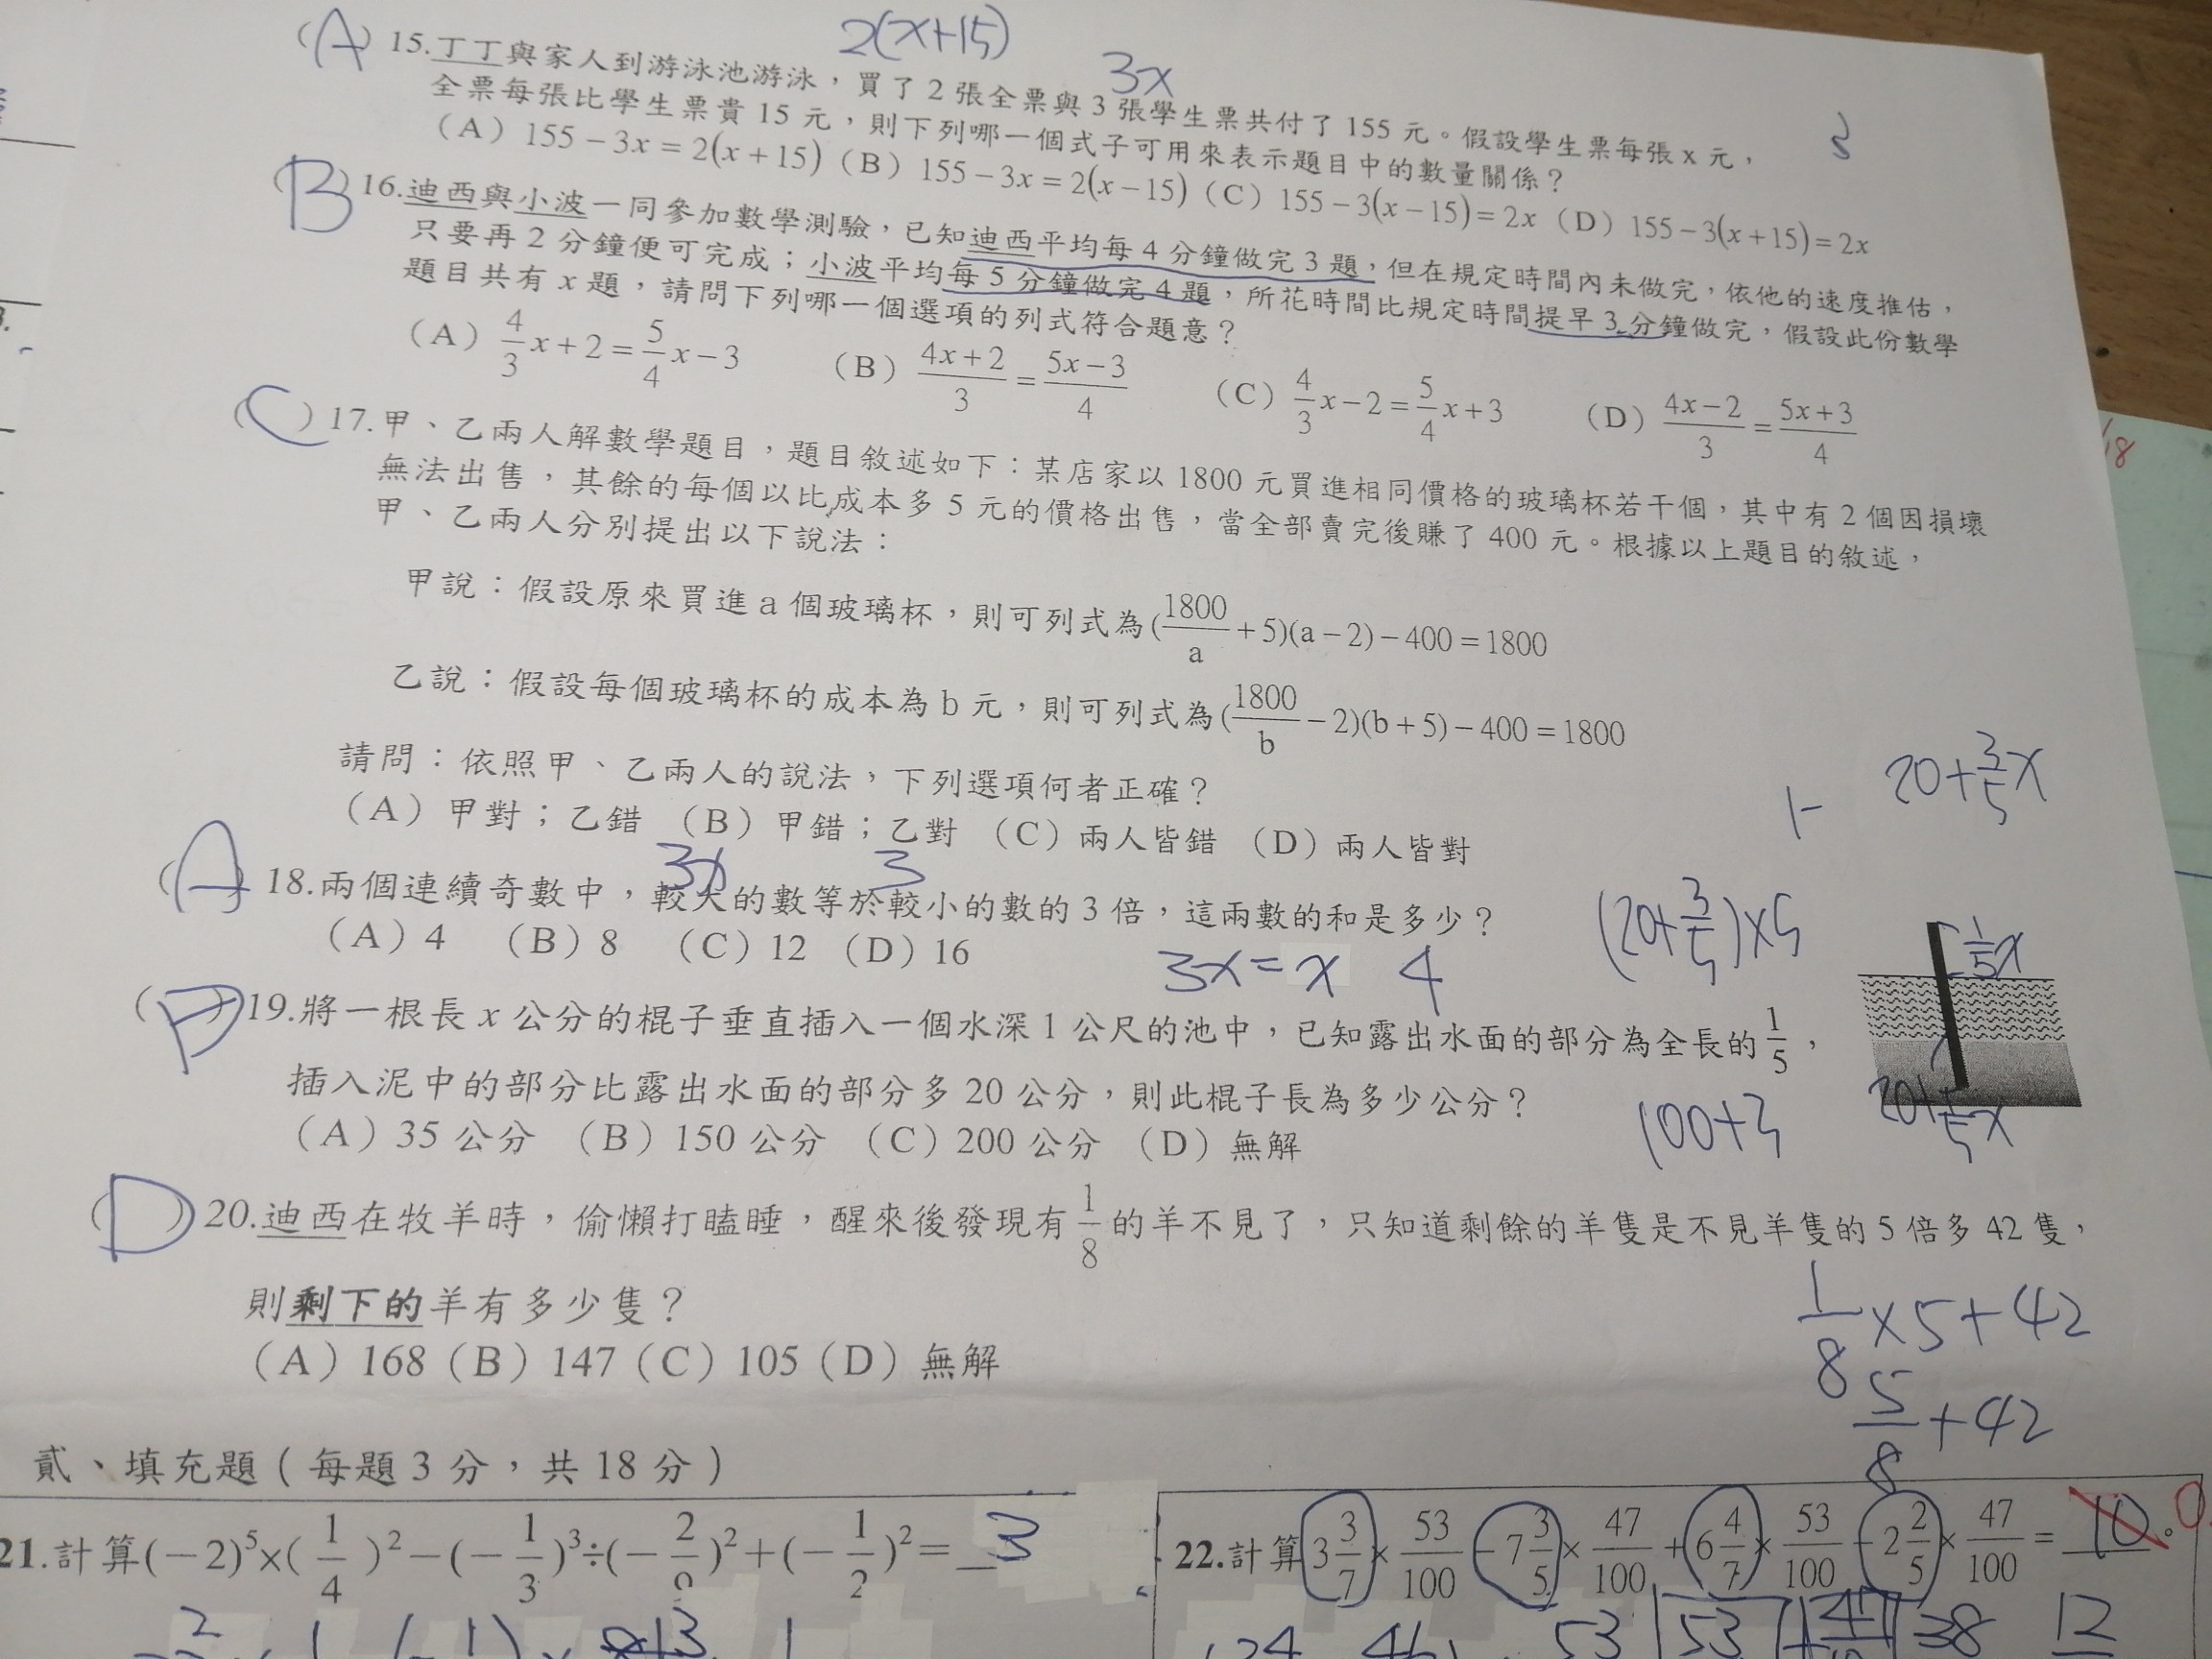 2(x+15)
3x
(A) 15.丁丁與家人到游泳池游泳，買了 2 張全票與 3 張學生票共付了 155 元。假設學生票每張 x 元，
全票每張比學生票貴 15 元，則下列哪一個式子可用來表示題目中的數量關係？
（A）155－3x＝2(x＋15)（B）155－3x＝2(x－15)（C）155－3(x－15)＝2x（D）155－3(x＋15)＝2x
(B) 16.迪西與小波一同參加數學測驗，已知迪西平均每 4 分鐘做完 3 題，但在規定時間內未做完，依他的速度推估，
只要再 2 分鐘便可完成；小波平均每 5 分鐘做完 4 題，所花時間比規定時間提早 3 分鐘做完，假設此份數學
題目共有 x 題，請問下列哪一個選項的列式符合題意？
（A）4/3 x＋2＝5/4 x－3 （B）(4x＋2)/3＝(5x－3)/4 （C）4/3 x－2＝5/4 x＋3 （D）(4x－2)/3＝(5x＋3)/4
(C) 17.甲、乙兩人解數學題目，題目敘述如下：某店家以 1800 元買進相同價格的玻璃杯若干個，其中有 2 個因損壞
無法出售，其餘的每個以比成本多 5 元的價格出售，當全部賣完後賺了 400 元。根據以上題目的敘述，
甲、乙兩人分別提出以下說法：
甲說：假設原來買進 a 個玻璃杯，則可列式為(1800/a＋5)(a－2)－400＝1800
乙說：假設每個玻璃杯的成本為 b 元，則可列式為(1800/b－2)(b＋5)－400＝1800
請問：依照甲、乙兩人的說法，下列選項何者正確？
（A）甲對；乙錯 （B）甲錯；乙對 （C）兩人皆錯 （D）兩人皆對
1- 20+3/5x
3x 3
(A) 18.兩個連續奇數中，較大的數等於較小的數的 3 倍，這兩數的和是多少？
（A）4 （B）8 （C）12 （D）16
3x=x 4
(20+3/5)×5
1/5x
(D) 19.將一根長 x 公分的棍子垂直插入一個水深 1 公尺的池中，已知露出水面的部分為全長的 1/5，
插入泥中的部分比露出水面的部分多 20 公分，則此棍子長為多少公分？
（A）35 公分 （B）150 公分 （C）200 公分 （D）無解
20+1/5x
(D) 20.迪西在牧羊時，偷懶打瞌睡，醒來後發現有 1/8 的羊不見了，只知道剩餘的羊隻是不見羊隻的 5 倍多 42 隻，
則剩下的羊有多少隻？
（A）168（B）147（C）105（D）無解
1/8×5+42
5/8+42
貳、填充題（每題 3 分，共 18 分）
21.計算(－2)⁵×(1/4)²－(－1/3)³÷(－2/9)²＋(－1/2)²＝ 3
22.計算 3 3/7×53/100－7 3/5×47/100＋6 4/7×53/100－2 2/5×47/100＝ 10